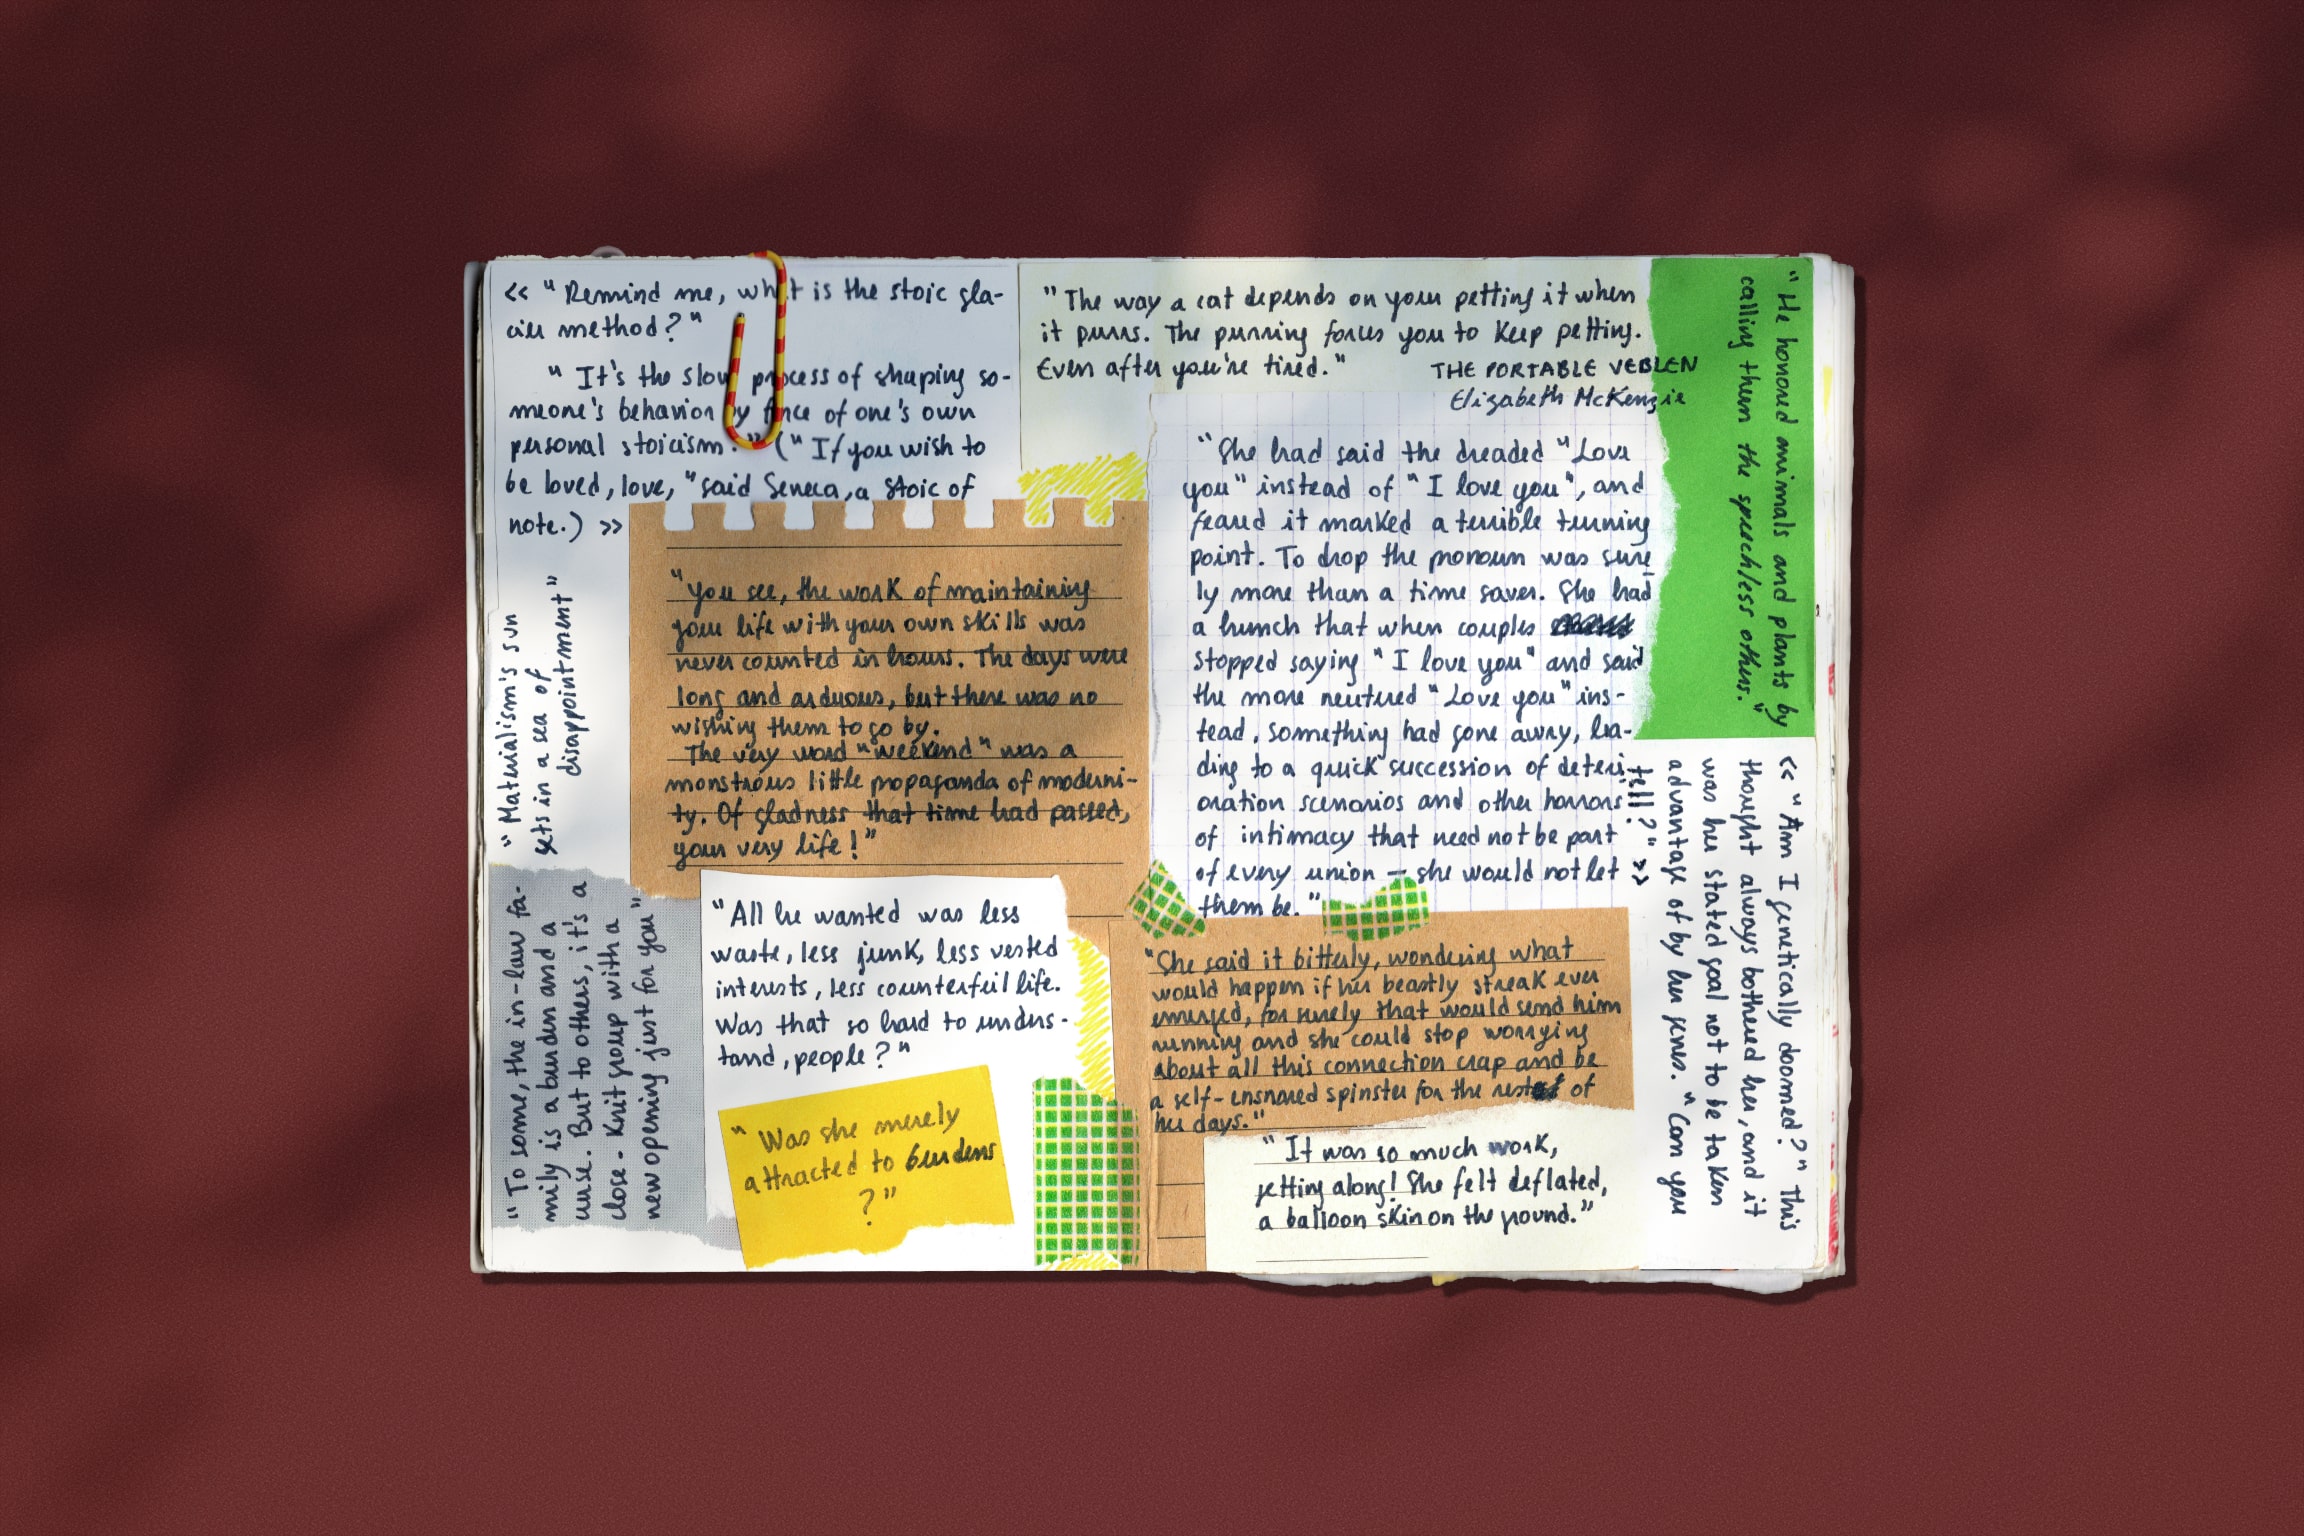 << "Remind me, what is the stoic gla-
cier method?"
"It's the slow process of shaping so-
meone's behavior by force of one's own
personal stoicism." ("If you wish to
be loved, love," said Seneca, a stoic of
note.) >>
"Materialism's sun
sets in a sea of
disappointment"
"You see, the work of maintaining
your life with your own skills was
never counted in hours. The days were
long and arduous, but there was no
wishing them to go by.
The very word "weekend" was a
monstrous little propaganda of moderni-
ty. Of gladness that time had passed,
your very life!"
"To some, the in-law fa-
mily is a burden and a
curse. But to others, it's a
close-knit group with a
new opening just for you"
"All he wanted was less
waste, less junk, less vested
interests, less counterfeit life.
Was that so hard to unders-
tand, people?"
"Was she merely
attracted to burdens
?"
"The way a cat depends on your petting it when
it purrs. The purring forces you to keep petting.
Even after you're tired."
THE PORTABLE VEBLEN
Elizabeth McKenzie
"She had said the dreaded "Love
you" instead of "I love you", and
feared it marked a terrible turning
point. To drop the pronoun was sure
ly more than a time saver. She had
a hunch that when couples
stopped saying "I love you" and said
the more neutered "Love you" ins-
tead, something had gone awry, lea-
ding to a quick succession of deteri-
oration scenarios and other horrors
of intimacy that need not be part
of every union — she would not let
them be."
"She said it bitterly, wondering what
would happen if her beastly streak ever
emerged, for surely that would send him
running and she could stop worrying
about all this connection crap and be
a self-ensnared spinster for the rest of
her days."
"It was so much work,
getting along! She felt deflated,
a balloon skin on the ground."
"He honored animals and plants by
calling them the speechless others."
<< "Am I genetically doomed?" This
thought always bothered her, and it
was her stated goal not to be taken
advantage of by her genes. "Can you
tell?" >>